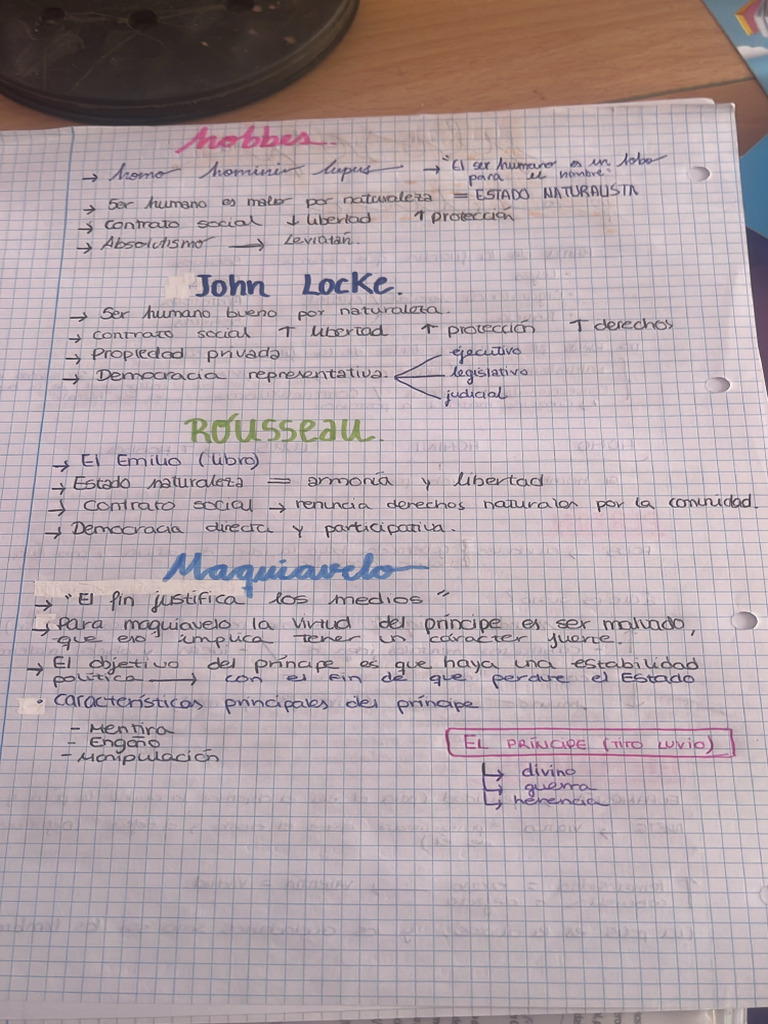 Hobbes.
→ homo hominis lupus → "El ser humano es un lobo
para el hombre."
→ Ser humano es malo por naturaleza = ESTADO NATURALISTA
→ contrato social ↓ libertad ↑ protección
→ Absolutismo → Leviatán.
John Locke.
→ Ser humano bueno por naturaleza.
→ contrato social ↑ libertad ↑ protección ↑ derechos
→ Propiedad privada
→ Democracia representativa.
ejecutivo
legislativo
judicial
Rousseau.
→ El Emilio (libro)
→ Estado naturaleza = armonía y libertad
→ contrato social → renuncia derechos naturales por la comunidad.
→ Democracia directa y participativa.
Maquiavelo
→ "El fin justifica los medios"
→ para maquiavelo la virtud del príncipe es ser malvado,
que eso implica tener un carácter fuerte.
→ El objetivo del príncipe es que haya una estabilidad
política → con el fin de que perdure el Estado
• características principales del príncipe
- Mentira
- Engaño
- Manipulación
EL PRÍNCIPE (TITO LIVIO)
↳ divino
↳ guerra
↳ herencia